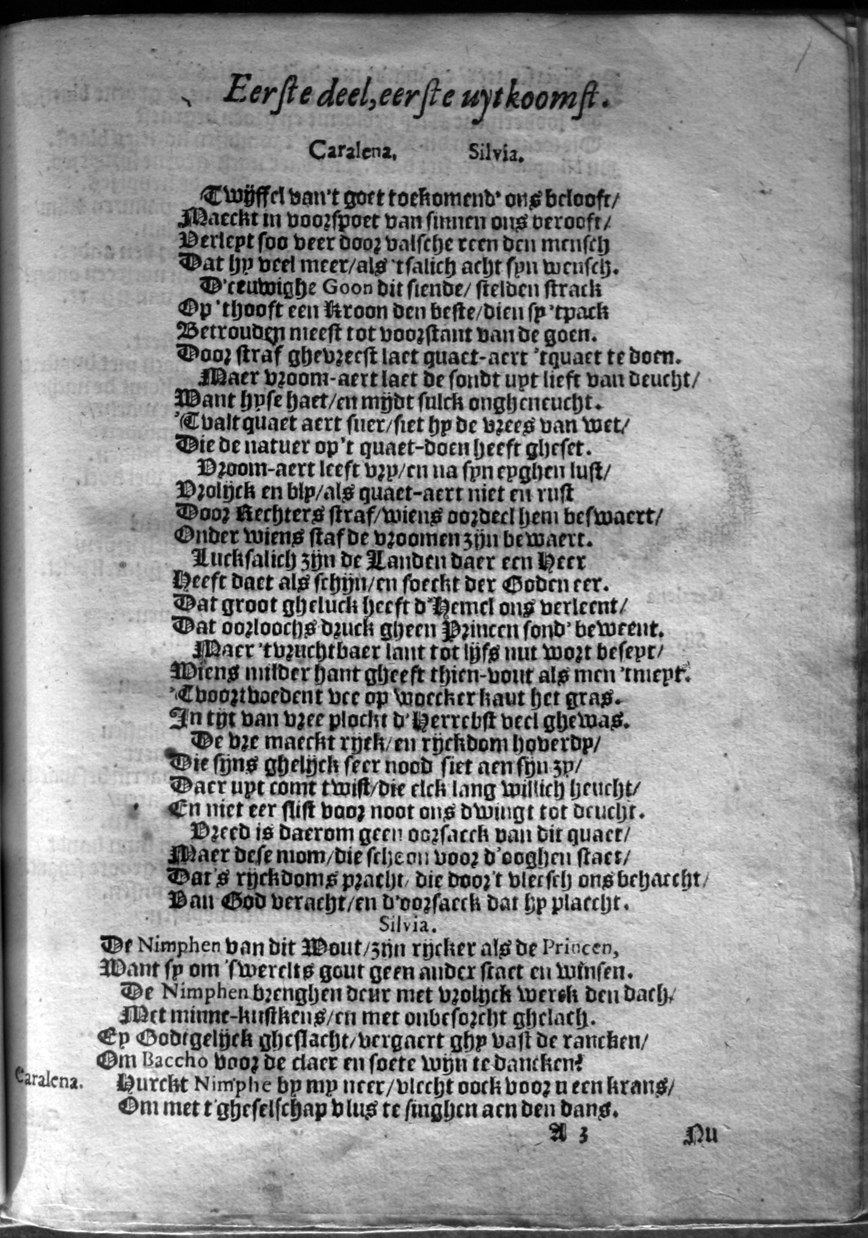 Eerste deel, eerste uytkoomst.
Caralena. Silvia.
Twijffel van't goet toekomend' ons belooft/
Maeckt in voorspoet van sinnen ons berooft/
Verleyt soo veer door valsche reen den mensch
Dat hy veel meer/als 'tsalich acht syn wensch.
D'eeuwighe Goon dit siende/ stelden strack
Op 'thooft een Kroon den beste/dien sy 'tpack
Betrouden meest tot voorstant van de goen.
Door straf ghevreest laet quaet-aert 'tquaet te doen.
Maer vroom-aert laet de sondt uyt lieft van deucht/
Want hyse haet/en mijdt sulck ongheneucht.
'Tvalt quaet aert suer/siet hy de vrees van wet/
Die de natuer op't quaet-doen heeft gheset.
Vroom-aert leeft vry/en na syn eyghen lust/
Vrolijck en bly/als quaet-aert niet en rust
Door Rechters straf/wiens oordeel hem beswaert/
Onder wiens staf de vroomen zijn bewaert.
Lucksalich zijn de Landen daer een Heer
Heeft daet als schijn/en soeckt der Goden eer.
Dat groot gheluck heeft d'Hemel ons verleent/
Dat oorloochs druck gheen Princen sond' beweent.
Maer 'tvruchtbaer lant tot lijfs nut wort beseyt/
Wiens milder hant gheeft thien-vout als men 'tmeyt.
'Tvoortvoedent vee op woecker kaut het gras.
In tyt van vree plockt d'Herrebst veel ghewas.
De vre maeckt ryck/en ryckdom hoverdy/
Die sijns ghelijck seer nood siet aen sijn zy/
Daer uyt comt twist/die elck lang willich heucht/
En niet eer slist voor noot ons dwingt tot deucht.
Vreed is daerom geen oorsaeck van dit quaet/
Maer dese mom/die scheon voor d'ooghen staet/
Dat's ryckdoms pracht/ die door't vleesch ons behaecht/
Van God veracht/en d'oorsaeck dat hy plaecht.
Silvia.
De Nimphen van dit Wout/zijn rycker als de Princen,
Want sy om 'swerelts gout geen ander staet en winsen.
De Nimphen brenghen deur met vrolyck werck den dach/
Met minne-kustkens/en met onbesorcht ghelach.
Ey Godtgelijck gheslacht/vergaert ghy vast de rancken/
Om Baccho voor de claer en soete wijn te dancken?
Caralena. Hurckt Nimphe by my neer/vlecht oock voor u een krans/
Om met t'gheselschap vlus te singhen aen den dans.
A 3 Nu